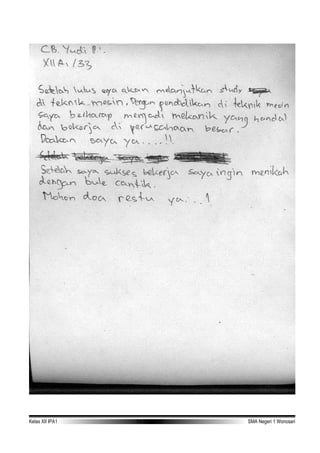 C.B. Yudi P.
XII A1 /33
Setelah lulus saya akan melanjutkan study
di teknik mesin, Dengan pendidikan di teknik mesin
saya berharap menjadi mekanik yang handal
dan bekerja di perusahaan besar.
Doakan saya ya....!!
Setelah bekerja saya
Setelah saya sukses bekerja saya ingin menikah
dengan bule cantik.
Mohon doa restu ya...!
Kelas XII IPA1 SMA Negeri 1 Wonosari